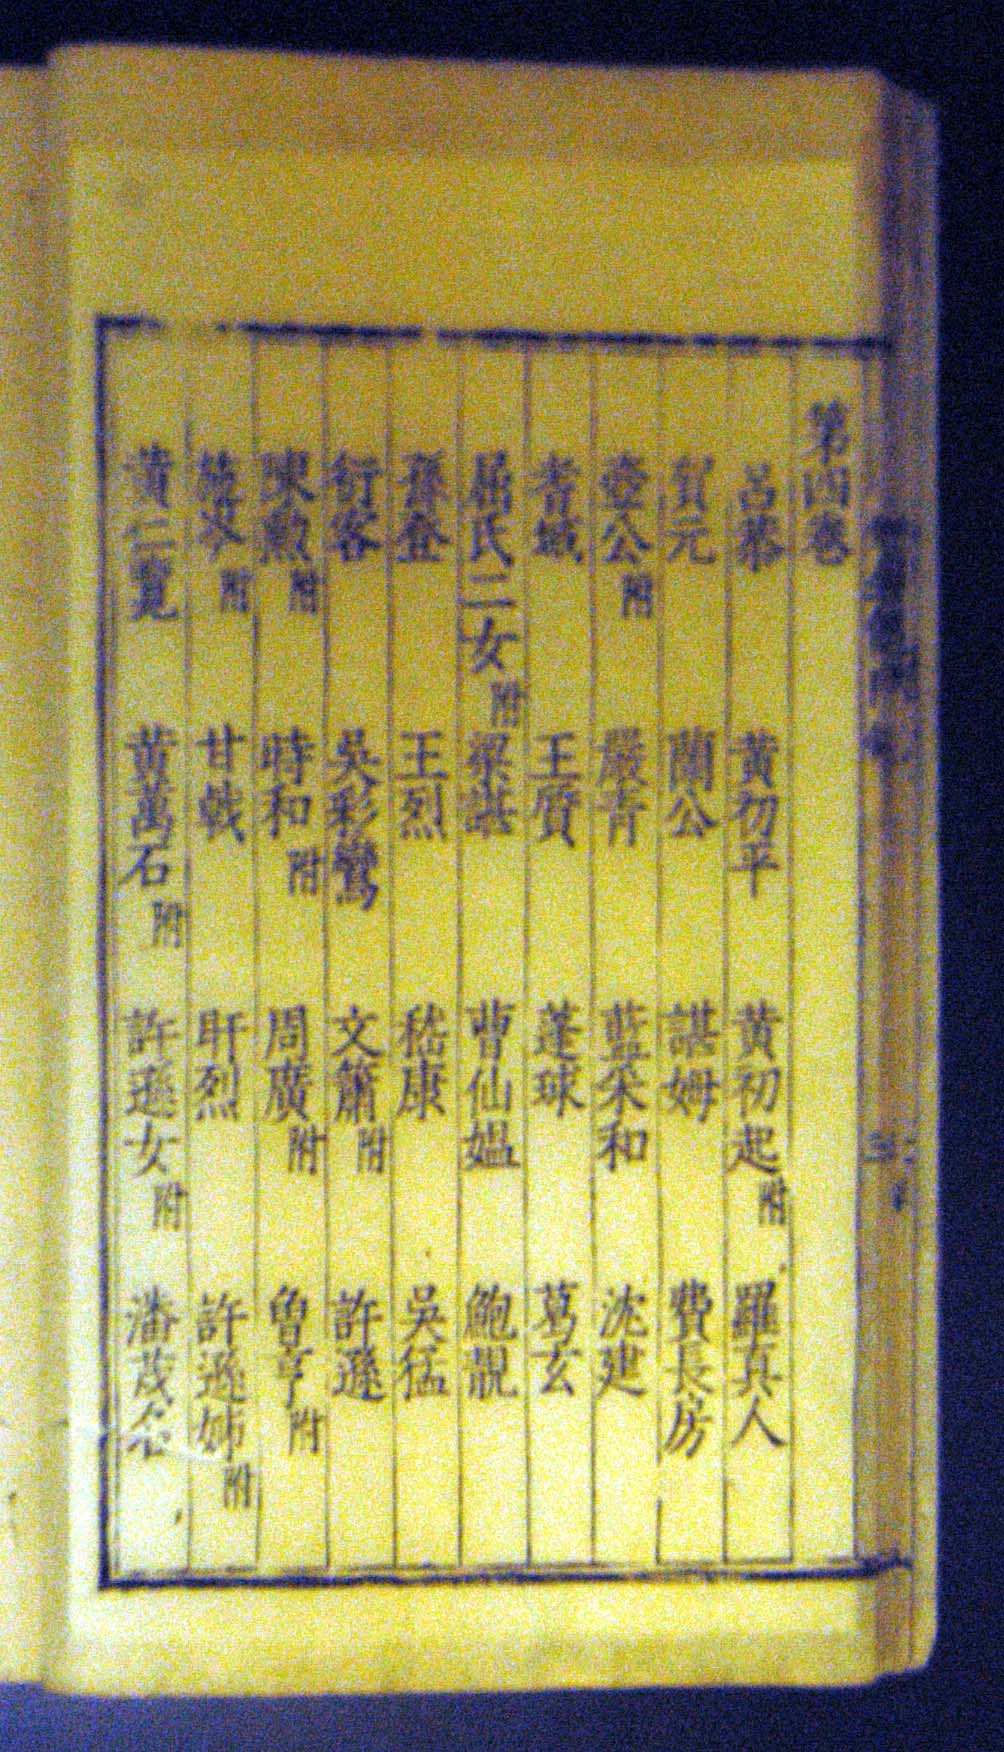 第四卷
呂恭 黃初平 黃初起附 羅真人
賀元 蘭公 諶姆 費長房
壺公附 嚴青 藍采和 沈建
青城 王質 蓬球 葛玄
屈氏二女附 梁諶 曹仙媼 鮑靚
孫登 王烈 嵇康 吳猛
衍客 吳彩鸞 文簫附 許遜
陳勲附 時和附 周廣附 曾亨附
施岑附 甘戟 盱烈 許遜姊附
黃仁覽 黃萬石附 許遜女附 潘茂名